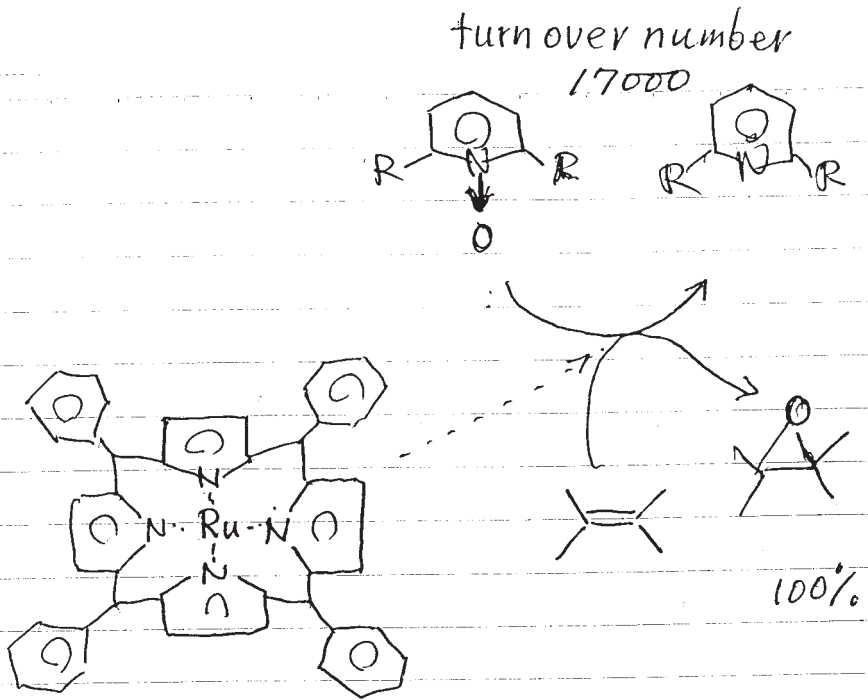 turn over number
17000
R N R
O
R N R
O
N
N Ru N
N
100%